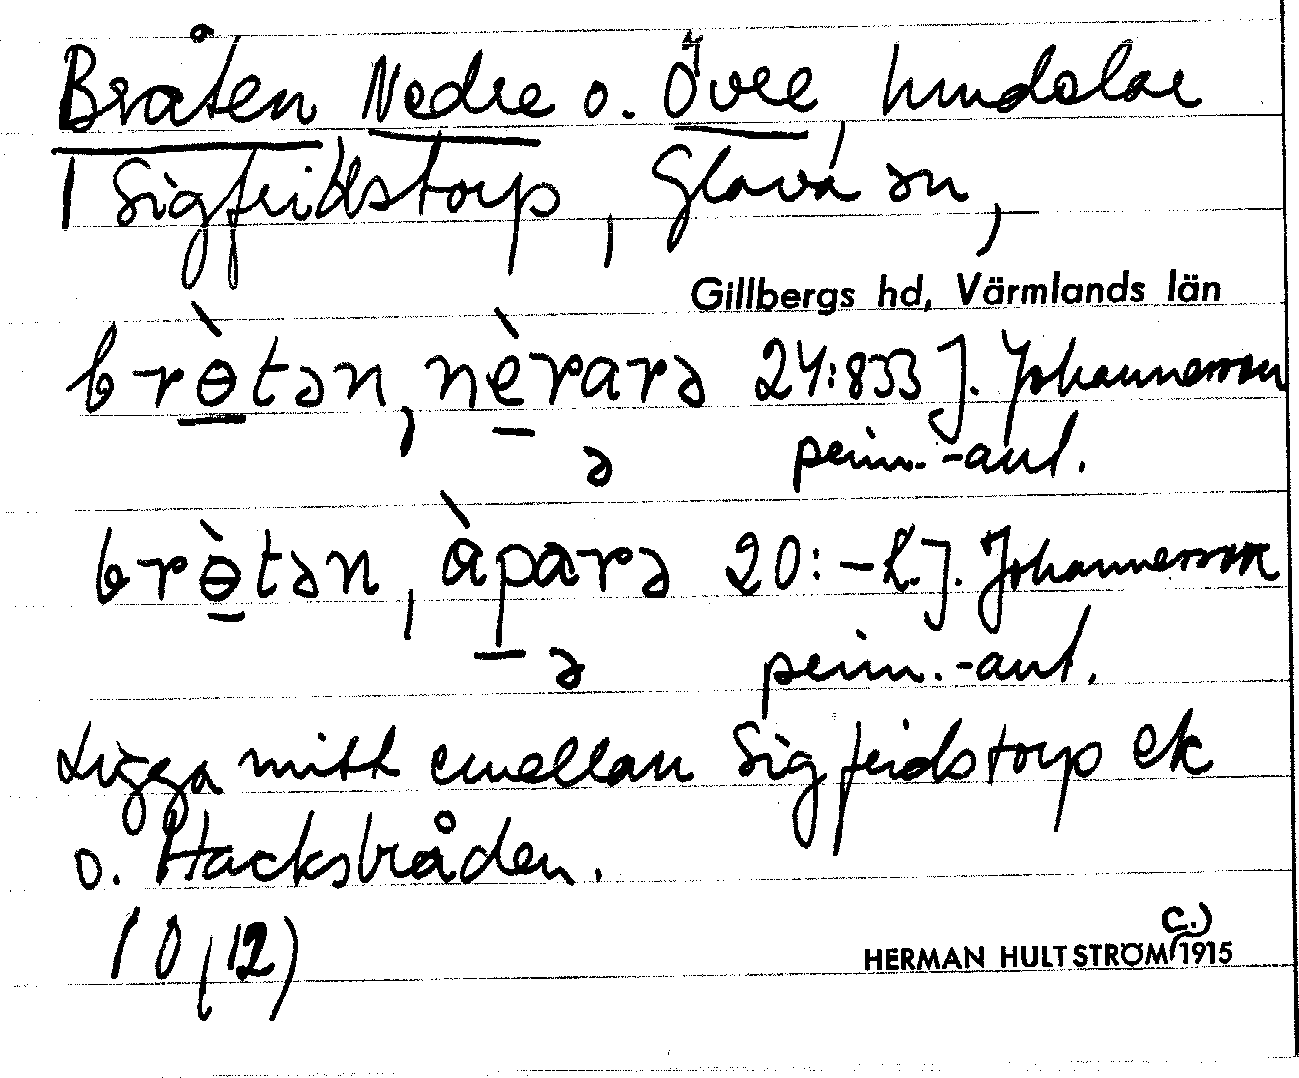 Bråten Nedre o. Övre, hmdelar
1 Sigfridstorp, Glava sn,
Gillbergs hd, Värmlands län
brɵ̀tən, nèrarə 24:833 J. Johannesson
ə perm.-ant.
brɵ̀tən, àparə 20:-L.J. Johannesson
ə perm.-ant.
Ligga mitt emellan Sigfridstorp ek
o. Hacksbråden.
10 (12)
HERMAN HULTSTRÖM (c.) 1915